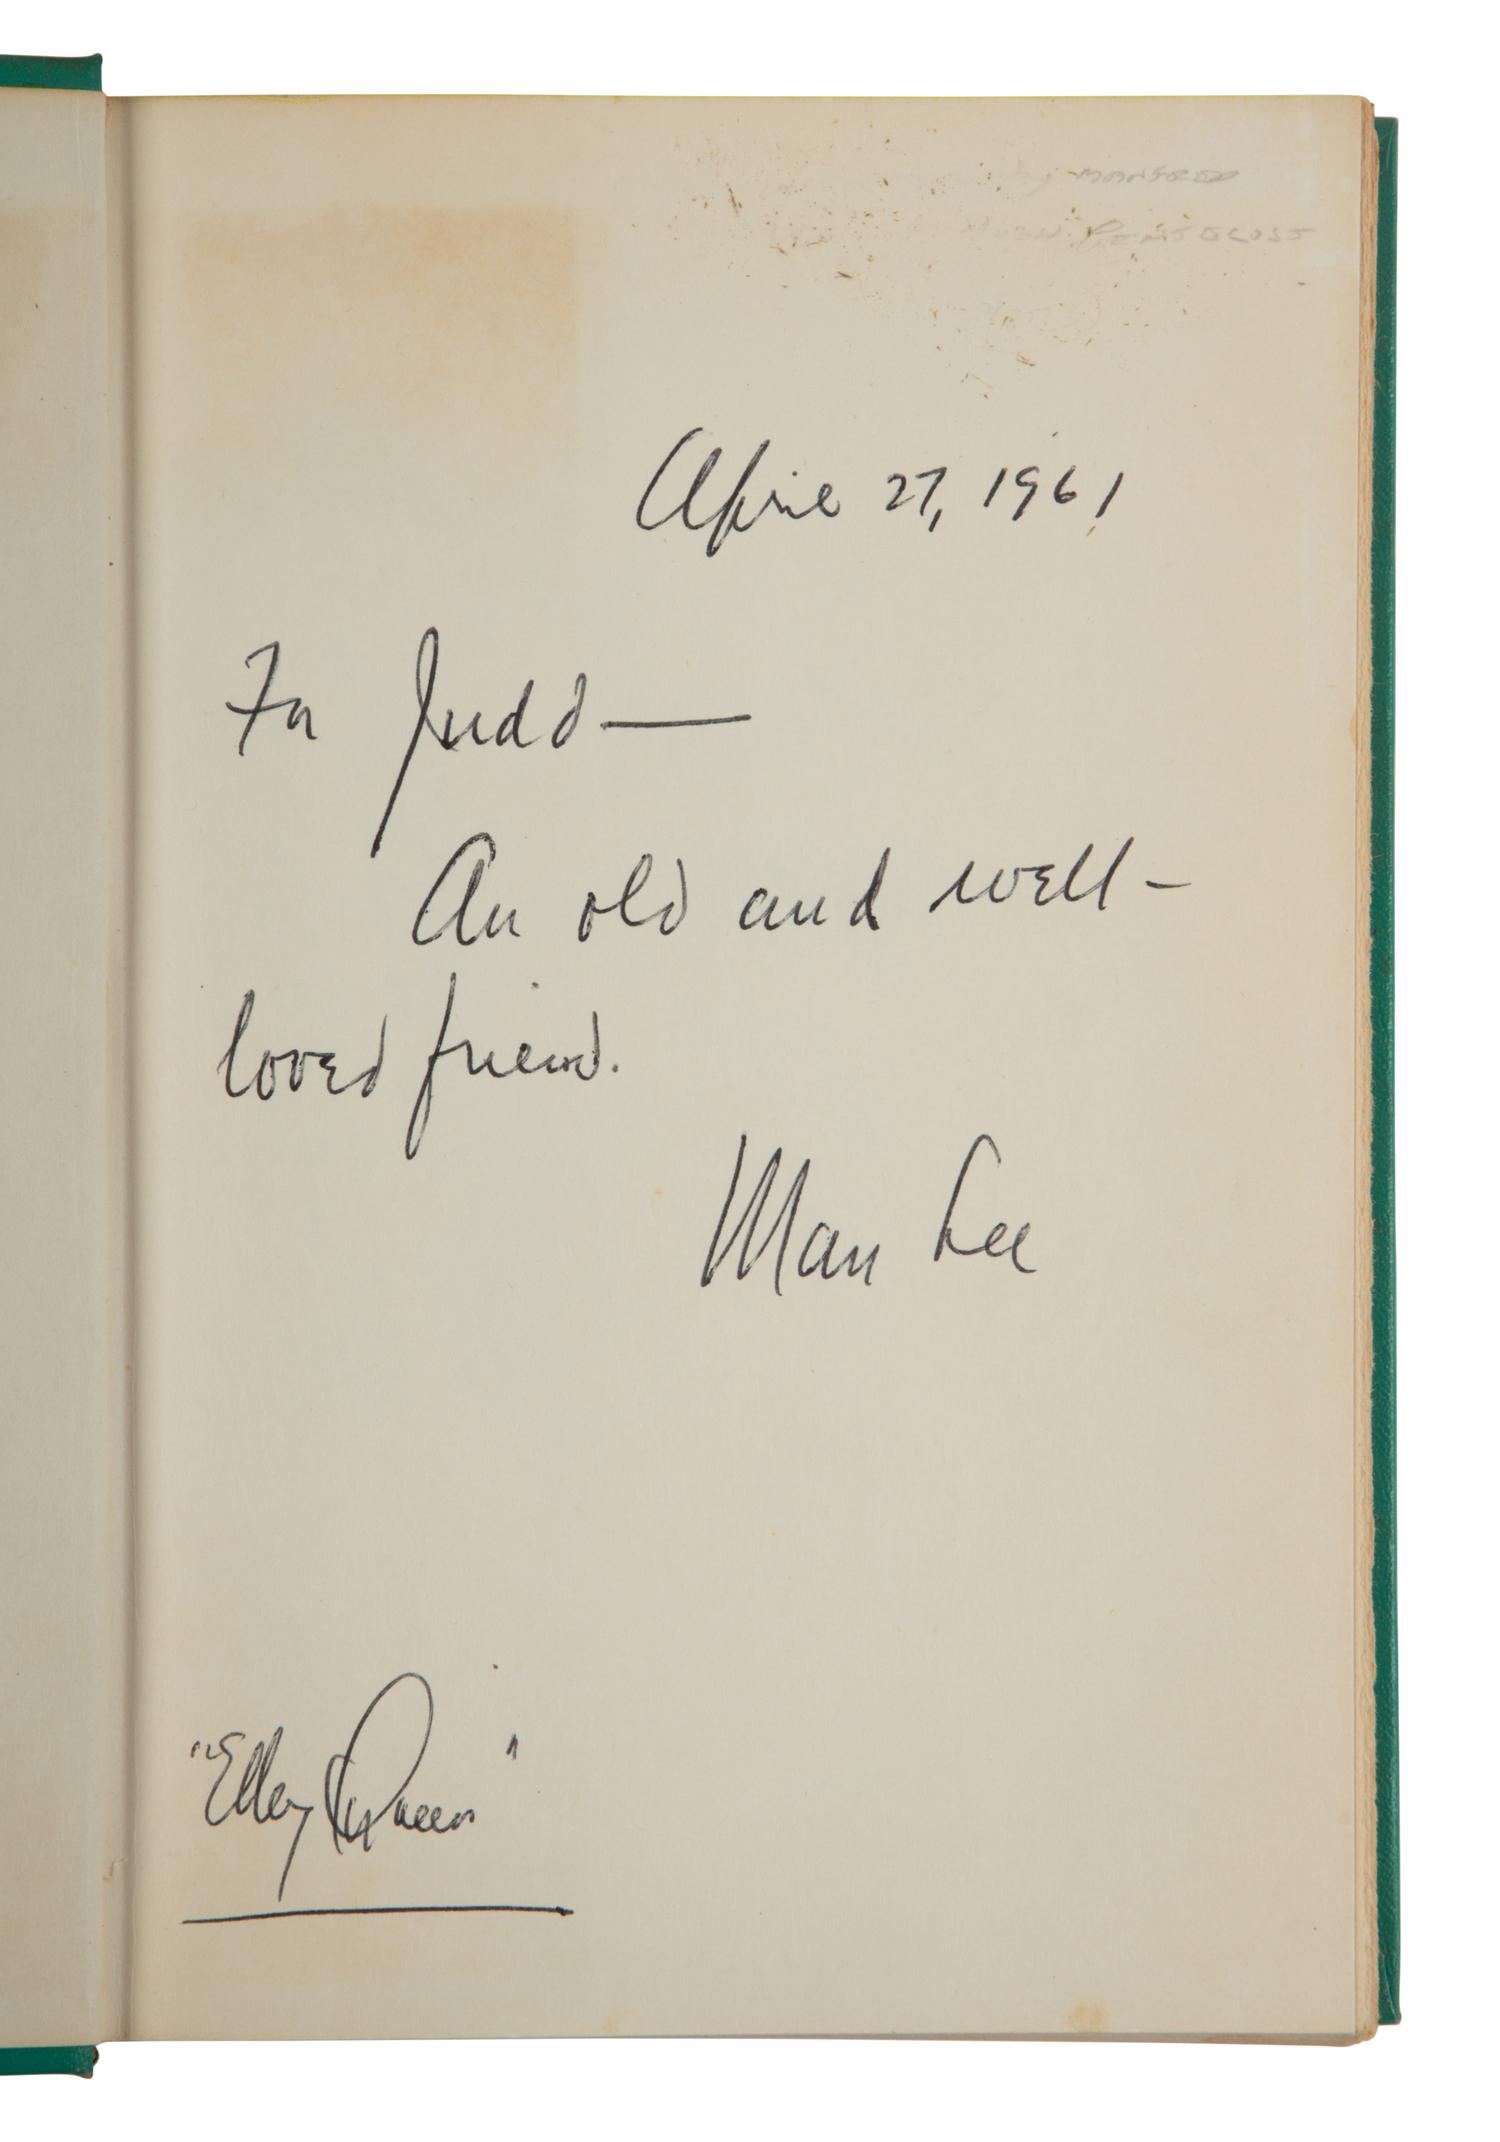 by MANFRED
PENTECOST
April 27, 1961
For Judd—
An old and well-
loved friend.
Man Lee
"Ellery Queen"